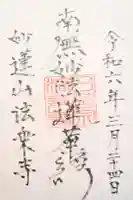 令和六年二月二十四日
南無妙法蓮華経
妙蓮山法栄寺